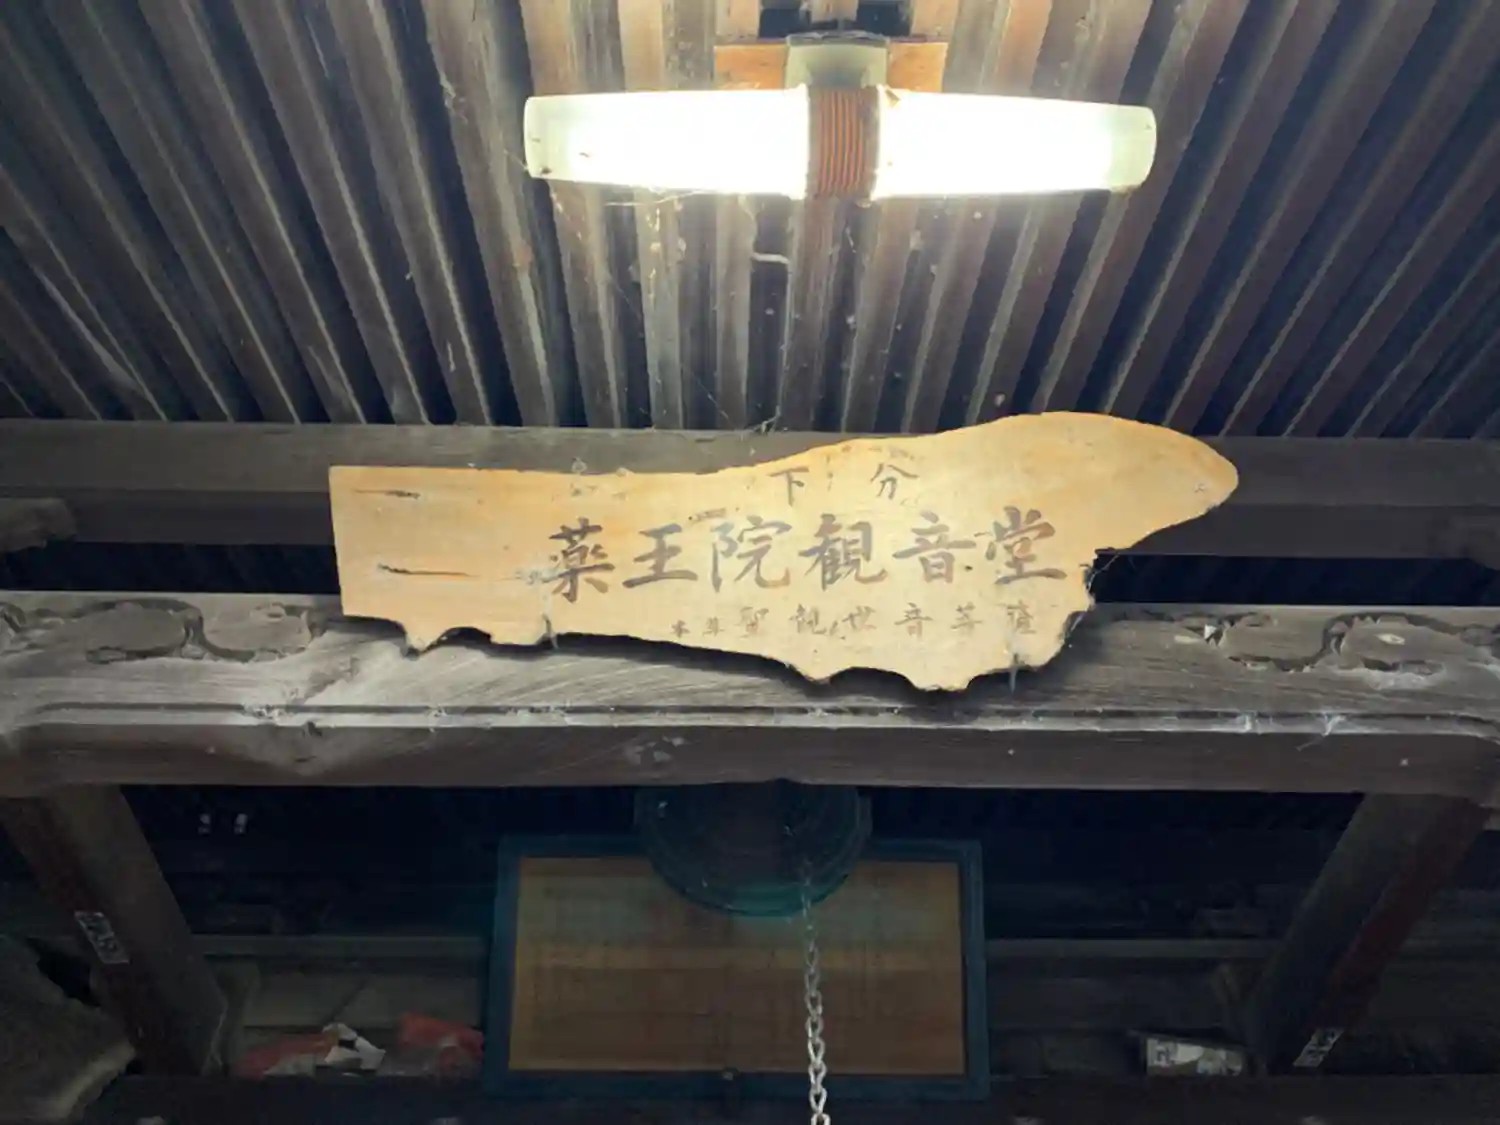 下分
薬王院観音堂
本尊聖観世音菩薩